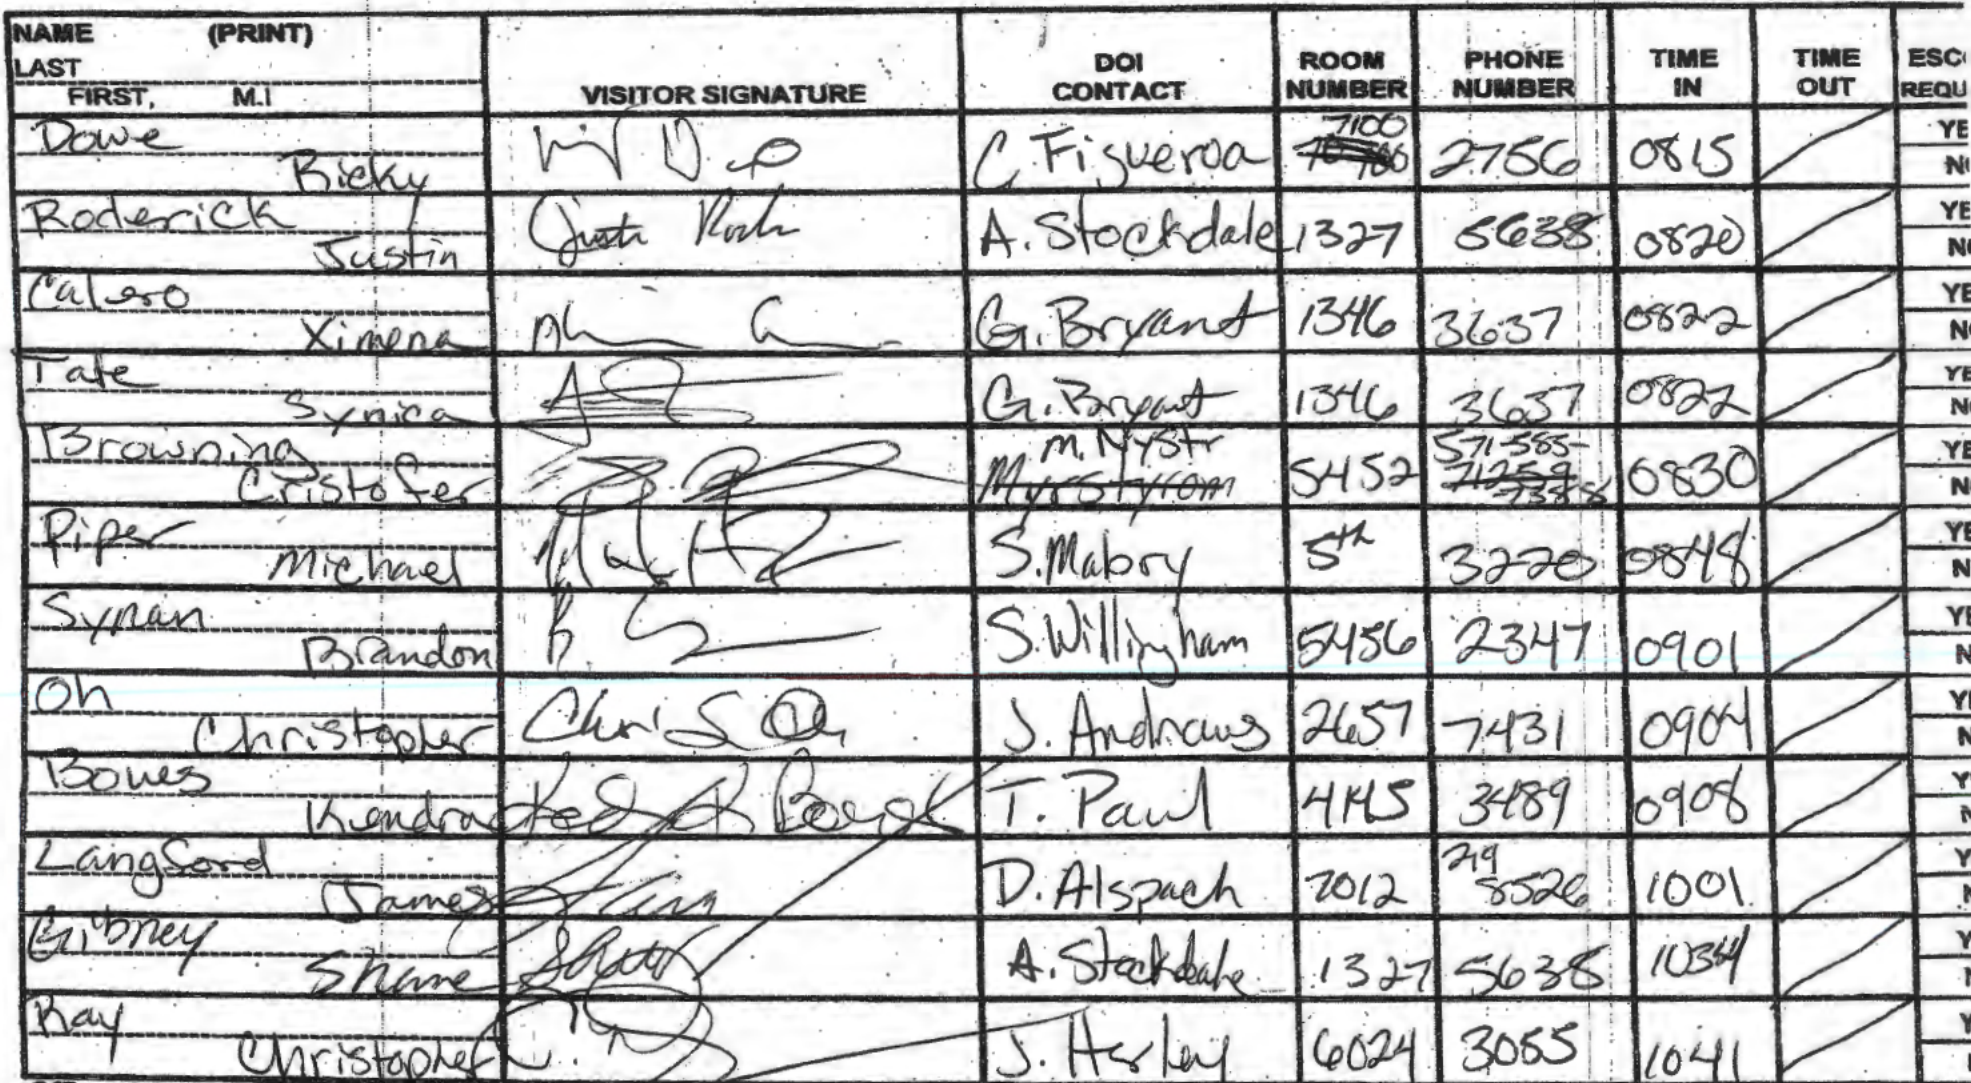 NAME (PRINT)
LAST
FIRST, M.I
VISITOR SIGNATURE
DOI CONTACT
ROOM NUMBER
PHONE NUMBER
TIME IN
TIME OUT
ESC
REQU
Dowe
Ricky C. Figueroa 7100 2756 0815 YE
N
Roderick
Justin A. Stockdale 1327 5638 0820 YE
N
Calero
Ximena G. Bryant 1346 3637 0822 YE
N
Tate
Synica G. Bryant 1346 3637 0822 YE
N
Browning M. Nystr 571-585-
Cristofer 5452 0830 YE
N
Piper
Michael S. Mabry 5th 3220 0848 YE
N
Synan
Brandon S. Willingham 5456 2347 0901 YE
N
Oh
Christopher Chris Oh J. Andrews 2657 7431 0904 Y
N
Kendra T. Paul 4145 3489 0908 Y
N
Langford 219
James D. Alspach 7012 8526 1001 Y
N
Gibney
Shane A. Stockdale 1327 5638 1034 Y
N
Ray
Christopher J. 6024 3055 1041 Y